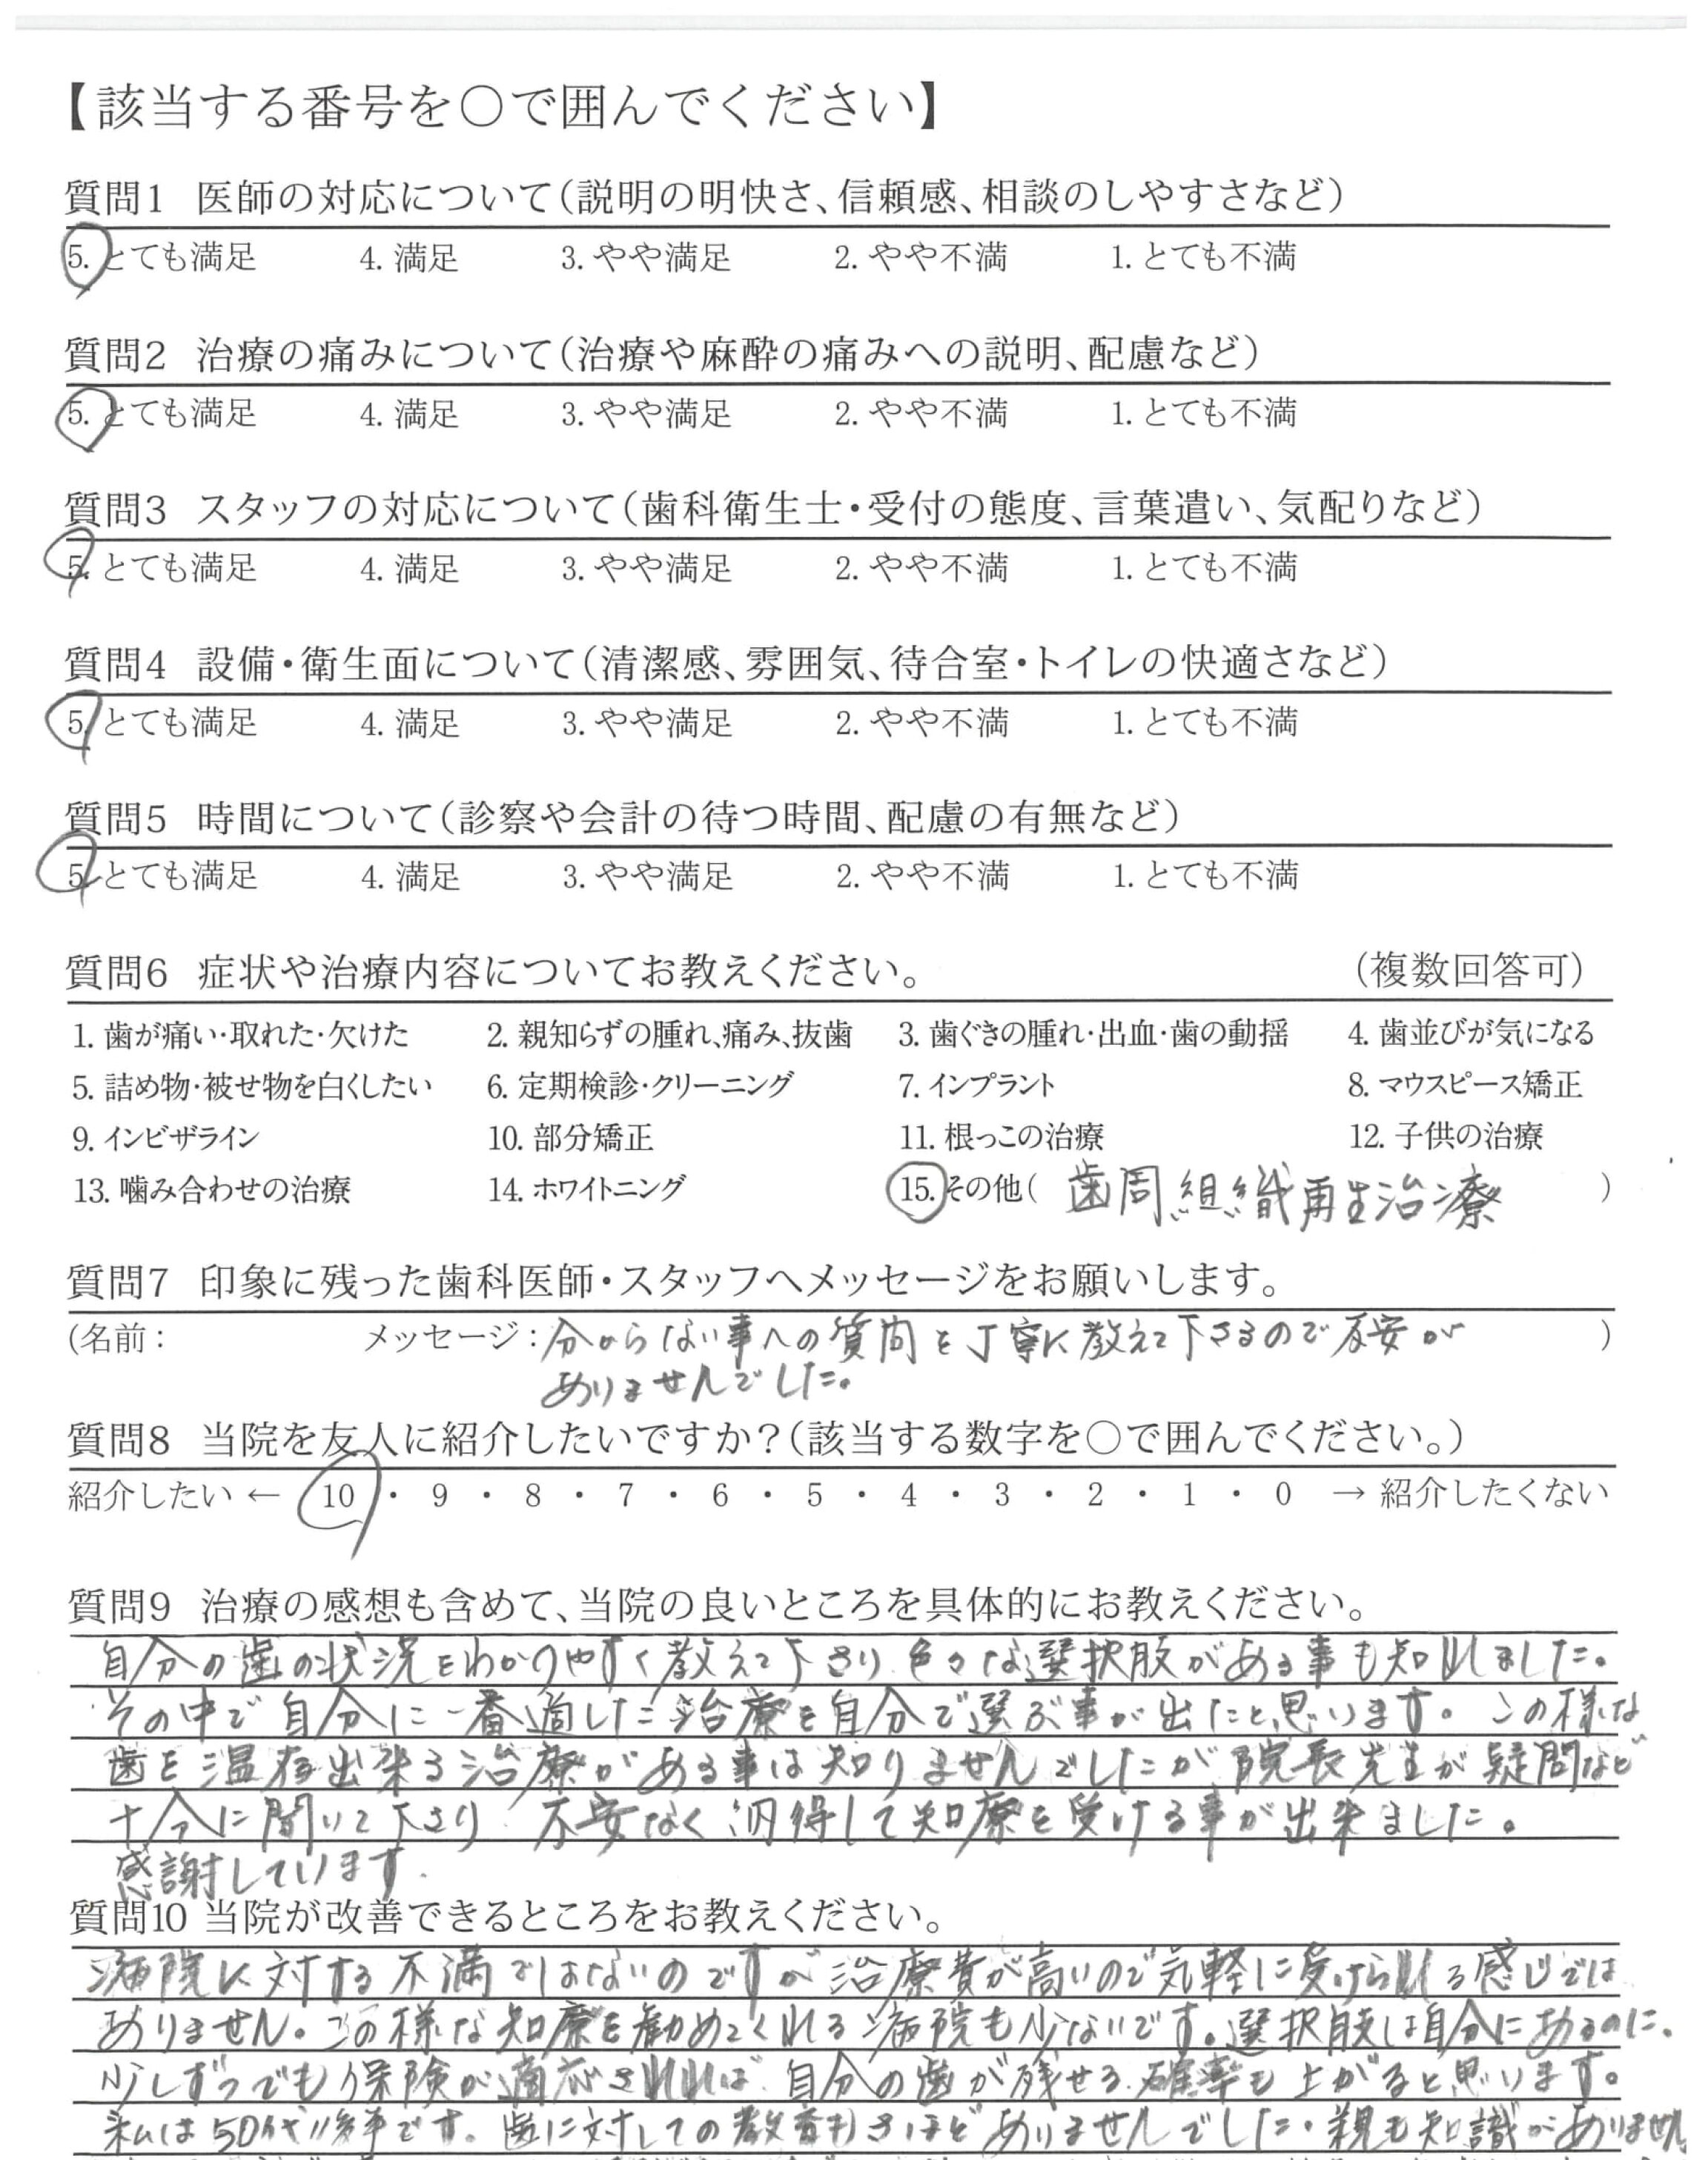 【該当する番号を○で囲んでください】
質問1 医師の対応について（説明の明快さ、信頼感、相談のしやすさなど）
5. とても満足 4. 満足 3. やや満足 2. やや不満 1. とても不満
質問2 治療の痛みについて（治療や麻酔の痛みへの説明、配慮など）
5. とても満足 4. 満足 3. やや満足 2. やや不満 1. とても不満
質問3 スタッフの対応について（歯科衛生士・受付の態度、言葉遣い、気配りなど）
5. とても満足 4. 満足 3. やや満足 2. やや不満 1. とても不満
質問4 設備・衛生面について（清潔感、雰囲気、待合室・トイレの快適さなど）
5. とても満足 4. 満足 3. やや満足 2. やや不満 1. とても不満
質問5 時間について（診察や会計の待つ時間、配慮の有無など）
5. とても満足 4. 満足 3. やや満足 2. やや不満 1. とても不満
質問6 症状や治療内容についてお教えください。 （複数回答可）
1. 歯が痛い・取れた・欠けた 2. 親知らずの腫れ、痛み、抜歯 3. 歯ぐきの腫れ・出血・歯の動揺 4. 歯並びが気になる
5. 詰め物・被せ物を白くしたい 6. 定期検診・クリーニング 7. インプラント 8. マウスピース矯正
9. インビザライン 10. 部分矯正 11. 根っこの治療 12. 子供の治療
13. 噛み合わせの治療 14. ホワイトニング 15. その他（ 歯周組織再生治療 ）
質問7 印象に残った歯科医師・スタッフへメッセージをお願いします。
(名前： メッセージ：分からない事への質問を丁寧に教えて下さるので不安が ）
ありませんでした。
質問8 当院を友人に紹介したいですか？（該当する数字を○で囲んでください。）
紹介したい ← 10 ・ 9 ・ 8 ・ 7 ・ 6 ・ 5 ・ 4 ・ 3 ・ 2 ・ 1 ・ 0 → 紹介したくない
質問9 治療の感想も含めて、当院の良いところを具体的にお教えください。
自分の歯の状況をわかりやすく教えて下さり 色々な選択肢がある事も知れました。
その中で自分に一番適した治療を自分で選ぶ事が出たと思います。この様な
歯を温存出来る治療がある事は知りませんでしたが 院長先生が疑問など
十分に聞いて下さり 不安なく納得して知療を受ける事が出来ました。
感謝しています。
質問10 当院が改善できるところをお教えください。
病院に対する不満ではないのですが 治療費が高いので気軽に受けられる感じでは
ありません。この様な知療を勧めてくれる病院も少ないです。選択肢は自分にあるのに。
少しずつでも保険が適応されれば 自分の歯が残せる確率も上がると思います。
私は50代後半です。歯に対しての教育もさほどありませんでした・親も知識がありません